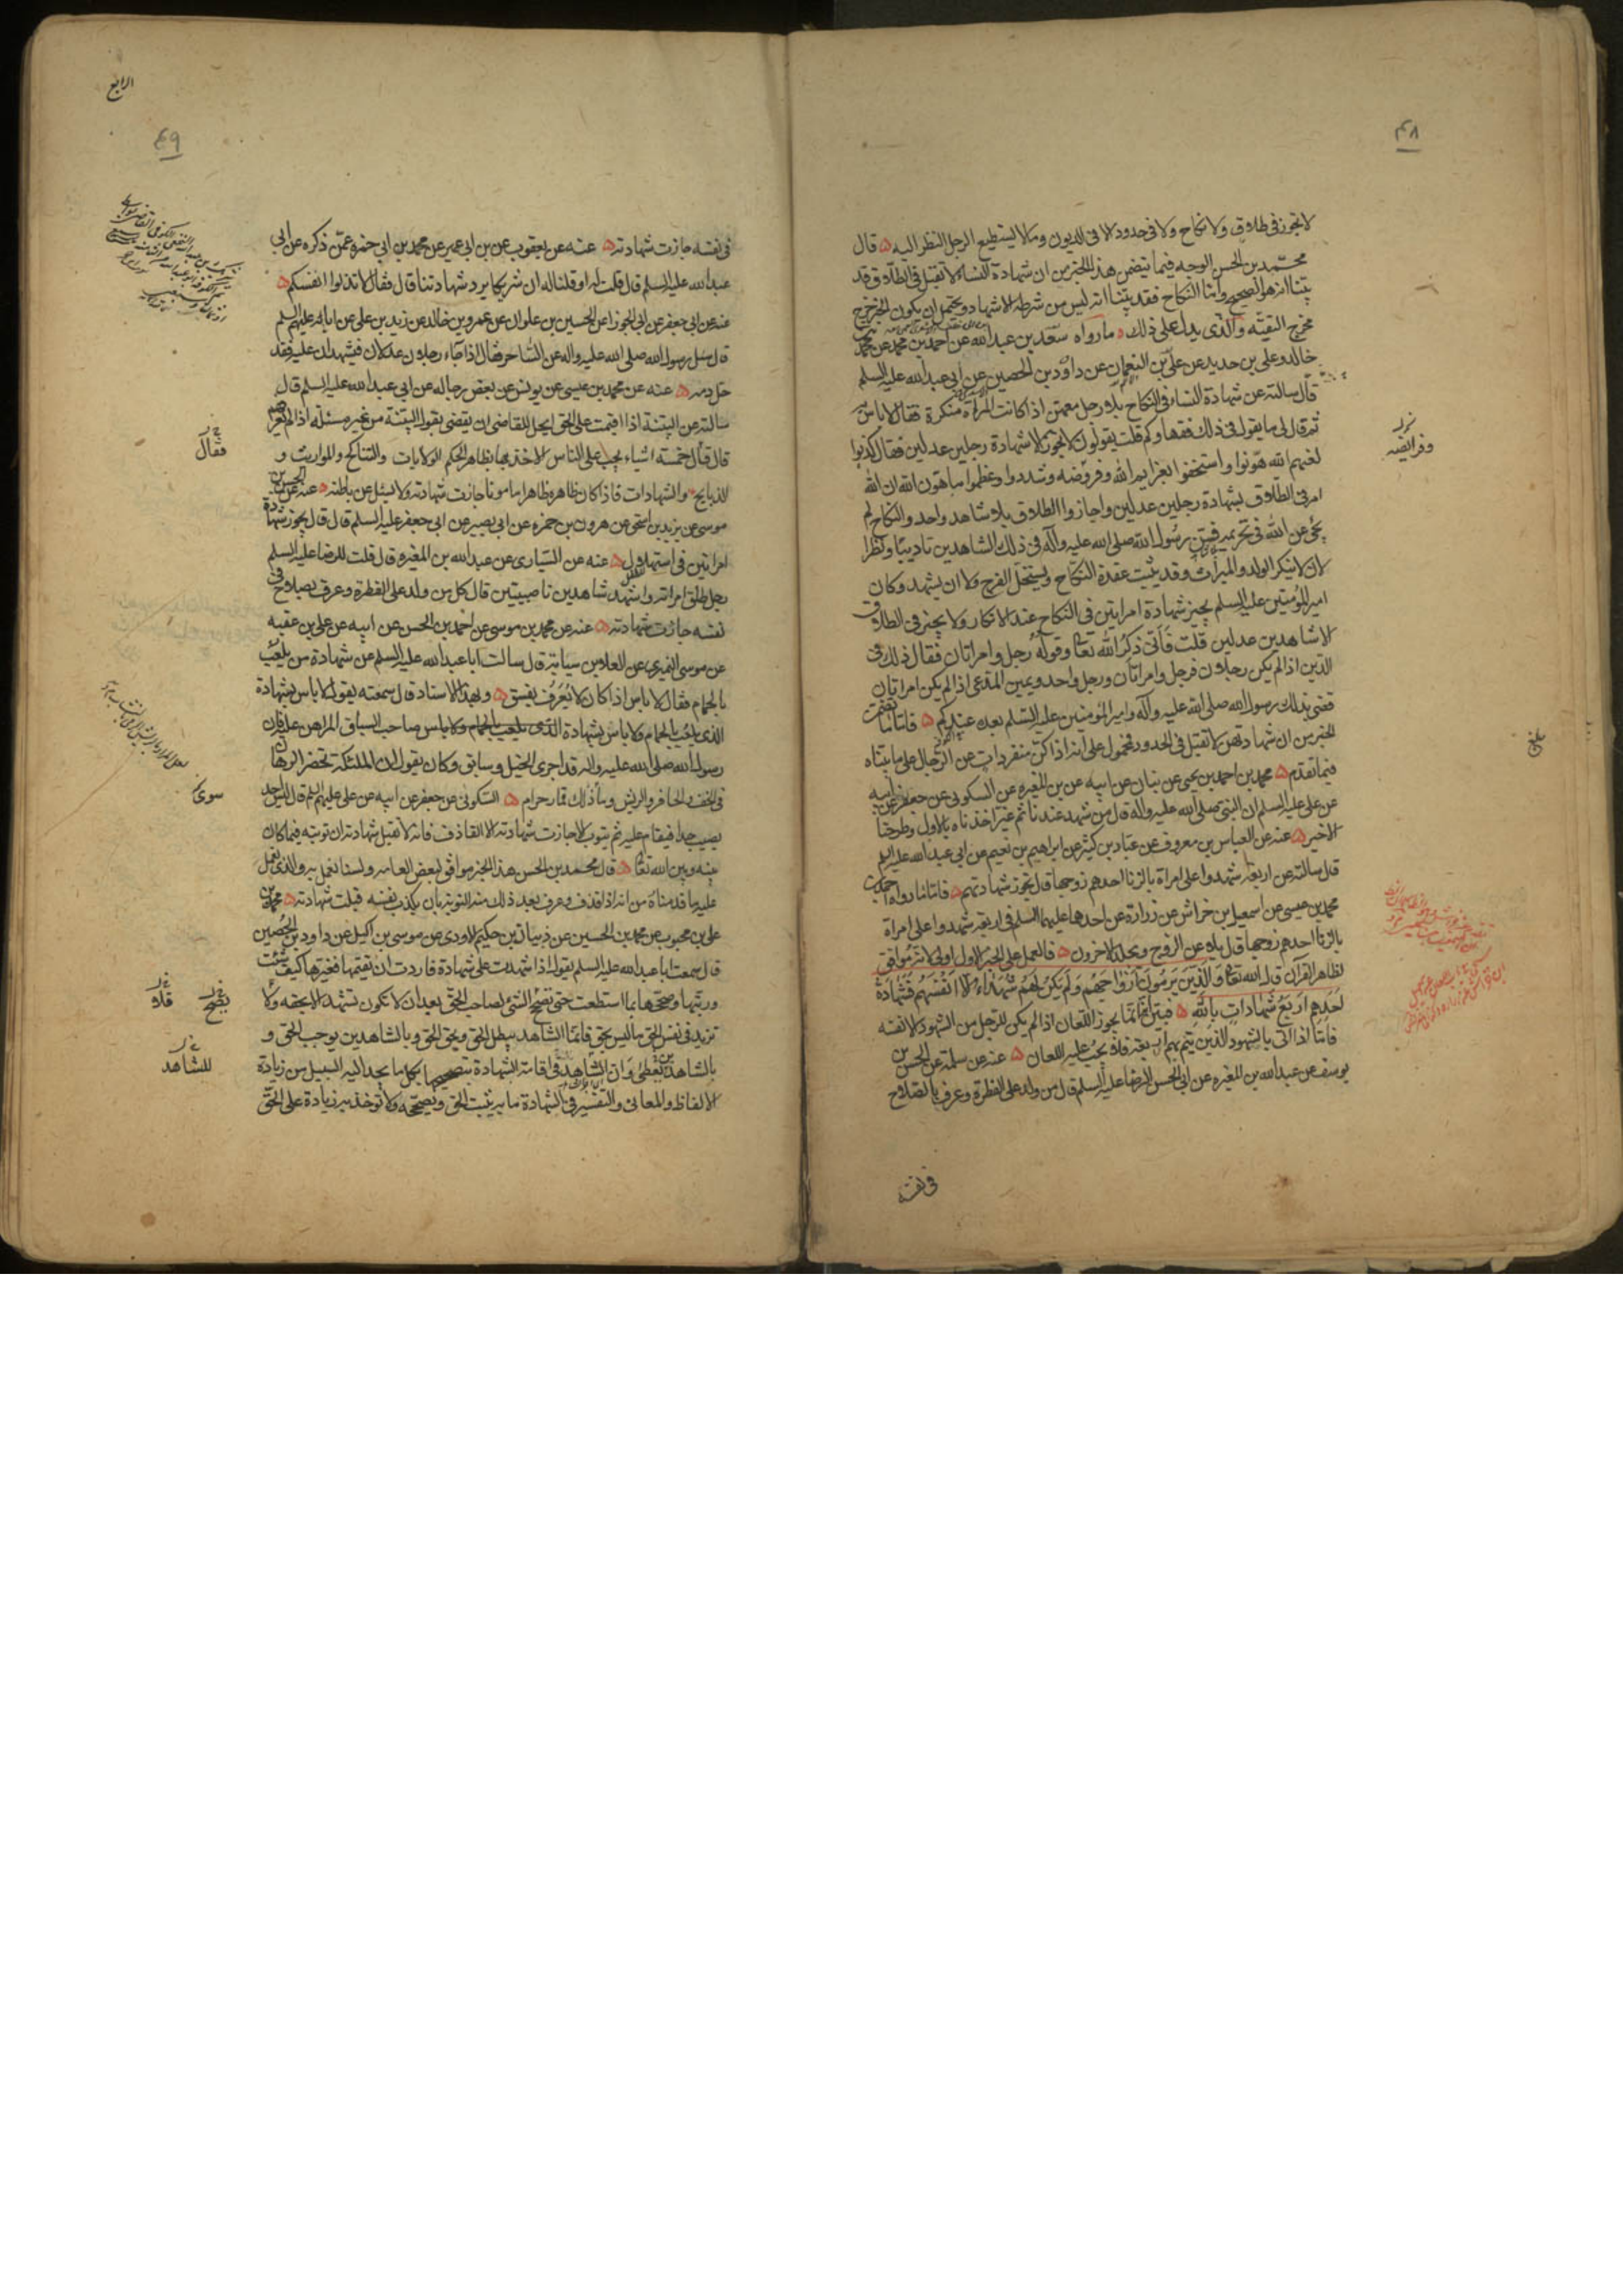 ۴۸
لا تجوز فى طلاق ولا نكاح ولا فى حدود الا فى الديون وما لا يستطيع الرجل النظر اليه قال
محمد بن الحسن الوجه فيما تيضمن هذا الخبر من ان شهادة النساء لا تقبل فى الطلاق قد
بيّنا انه هو الصحيح وامّا النكاح فقد بيّنا انه ليس من شرطه الاشهاد ويحتمل ان يكون الخبر خرج
مخرج التقيّه والّذى يدلّ على ذلك ما رواه سعد بن عبد الله عن احمد بن محمد عن محمد بن
خالد وعلى بن حديد عن على بن النعمان عن داود بن الحصين عن ابى عبد الله عليه السلم
قال سالته عن شهادة النساء فى النكاح بلا رجل معهن اذا كانت المراة منكرة فقال لا باس به
ثم قال لى ما يقول فى ذلك فقهاوكم قلت يقولون لا يجوز الا شهادة رجلين عدلين فقال كذبوا
لعنهم الله هوّنوا واستخفوا بعزايم الله وفروضه وشددوا وعظموا ما هون الله ان الله
امر فى الطلاق بشهادة رجلين عدلين واجازوا الطلاق بلا شاهد واحد والنكاح لم
يجئ عن الله فى تحريمه فسن رسول الله صلى الله عليه وآله فى ذلك الشاهدين تاديبا ونظرا
لان لا ينكر الولد والميراث وقد يثبت عقدة النكاح ويستحل الفرج ولا ان يشهد وكان
امير المؤمنين عليه السلم يجيز شهادة امراتين فى النكاح عند الانكار ولا يجيز فى الطلاق
الا شاهدين عدلين قلت فانّى ذكر الله تعا وقوله رجل وامراتان فقال ذلك فى
الدّين اذا لم يكن رجلان فرجل وامراتان ورجل واحد ويمين المدعى اذا لم يكن امراتان
قضى بذلك رسول الله صلى الله عليه وآله وامير المؤمنين عليه السّلم بعده عندكم فامّا ما تضمّن
الخبر من ان شهادتهن لا تقبل فى الحدود فمحمول على انه اذا كن منفردات عن الرّجال على ما بيناه
فيما تقدم محمد بن احمد بن يحيى عن بنان عن ابيه عن بن المغيره عن السكونى عن جعفر عن ابيه
عن على عليه السلم ان النبى صلى الله عليه وآله قال من شهد عندنا ثم غيّر اخذناه بالاول وطرحنا
الاخير عنه عن العباس بن معروف عن عباد بن كثير عن ابراهيم بن نعيم عن ابى عبد الله عليه السلم
قال سالته عن اربعة شهدوا على امراة بالزنا احدهم زوجها قال تجوز شهادتهم فامّا ما رواه احمد بن
محمد بن عيسى عن اسمعيل بن خراش عن زرارة عن احدهما عليهما السلم فى اربعة شهدوا على امراة
بالزنا احدهم زوجها قال يلاعن الزوج ويجلد الاخرون فالعمل على الخبر الاول اولى لانه موافق
لظاهر القرآن قال الله تعا وَالّذينَ يَرمُونَ اَزواجَهُم وَلَم يَكُن لَهُم شُهَدَاءُ الّا اَنفُسُهُم فَشَهَادَةُ
اَحَدِهِم اَربَعُ شَهاداتٍ بِاللهِ فبيّن انّه انّما يجوز اللعان اذا لم يكن للرجل من الشهود الا نفسه
فامّا اذا اتى بالشهود الذين يتم بهم اربعة فلا يجب عليه اللعان عنه عن سلمة عن الحسن بن
يوسف عن عبد الله بن المغيره عن ابى الحسن الرضا عليه السلم قال من ولد على الفطرة وعرف بالصلاح
فى نفسه
وفرائضه
بلغ
الرابع
۴۹
فى نفسه جازت شهادته عنه عن يعقوب عن بن ابى عمير عن محمد بن ابى حمزه عمّن ذكره عن ابى
عبد الله عليه السلم قال قلت له او قلنا له ان شريكا يرد شهادتنا قال فقال لا تذلوا انفسكم
عنه عن ابى جعفر عن ابى الجوزا عن الحسين بن علوان عن عمرو بن خالد عن زيد بن على عن ابائه عليهم السلم
قال سئل رسول الله صلى الله عليه وآله عن الساحر فقال اذا جاء رجلان عدلان فيشهدان عليه فقد
حل دمه عنه عن محمد بن عيسى عن يونس عن بعض رجاله عن ابى عبد الله عليه السلم قال
سالته عن البيّنة اذا اقيمت على الحق ايحل للقاضى ان يقضى بقول البيّنة من غير مسئلة اذا لم يعرفهم
قال قال خمسة اشياء يجب على الناس الاخذ بها بظاهر الحكم الولايات والتناكح والمواريث و
الذبايح والشهادات فاذا كان ظاهره ظاهرا مامونا جازت شهادته ولا يسئل عن باطنه عنه عن الحسن بن
موسى عن يزيد بن اسحق عن هرون بن حمزه عن ابى بصير عن ابى جعفر عليه السلم قال قال يجوز شهادة
امراتين فى استهلال عنه عن السّيارى عن عبد الله بن المغيره قال قلت للرضا عليه السلم
رجل طلق امراته واشهد شاهدين ناصبيين قال كل من ولد على الفطرة وعرف بصلاح فى
نفسه جازت شهادته عنه عن محمد بن موسى عن احمد بن الحسن عن ابيه عن على بن عقبه
عن موسى النميرى عن العلا بن سيابة قال سالت ابا عبد الله عليه السلم عن شهادة من يلعب
بالحمام فقال لا باس اذا كان لا يُعرَف بفسق وبهذا الاسناد قال سمعته يقول لا باس بشهادة
الذى يلعب بالحمام ولا باس بشهادة الذى يلعب بالحمام ولا باس صاحب السباق المراهن عليه فان
رسول الله صلى الله عليه وآله قد اجرى الخيل وسابق وكان يقول ان الملئكة تحضر الرهان
فى الخف والحافر والريش وما ذلك قمار حرام السكونى عن جعفر عن ابيه عن على عليهم السلم قال ليس احد
يصيب حدا فيقام عليه ثم يتوب الا جازت شهادته الا القاذف فانه لا تقبل شهادته ان توبته فيما كان
بينه وبين الله تعا قال محمد بن الحسن هذا الخبر موافق لبعض العامه ولسنا نعمل به والذى نعمل
عليه ما قدمناه من انه اذا قذف وعرف بعد ذلك منه التوبة بان يكذب نفسه قبلت شهادته محمد بن
على بن محبوب عن محمد بن الحسين عن ذبيان بن حكيم الاودى عن موسى بن اكيل عن داود بن الحُصين
قال سمعت ابا عبد الله عليه السلم يقول اذا شهدت على شهادة فاردت ان تقيمها فغيّرها كيف شئت
ورتبها وصححها بما استطعت حتى تصحّ الشئ لصاحب الحق بعد ان لا تكون تشهد الا بحقه ولا
تزيد فى نفس الحق ما ليس بحق فانما الشاهد يبطل الحق ويحق الحق وبالشاهدين يوجب الحق و
بالشاهدين يعطى وان الشاهد فى اقامة الشهادة بتصحيحها بكل ما يجد اليه السبيل من زيادة
الالفاظ والمعانى والتفسير فى الشهادة ما به يثبت الحق ويصححه ولا توخذ به زيادة على الحق
فقال
سوى
يصحّ
فلا
للشاهد